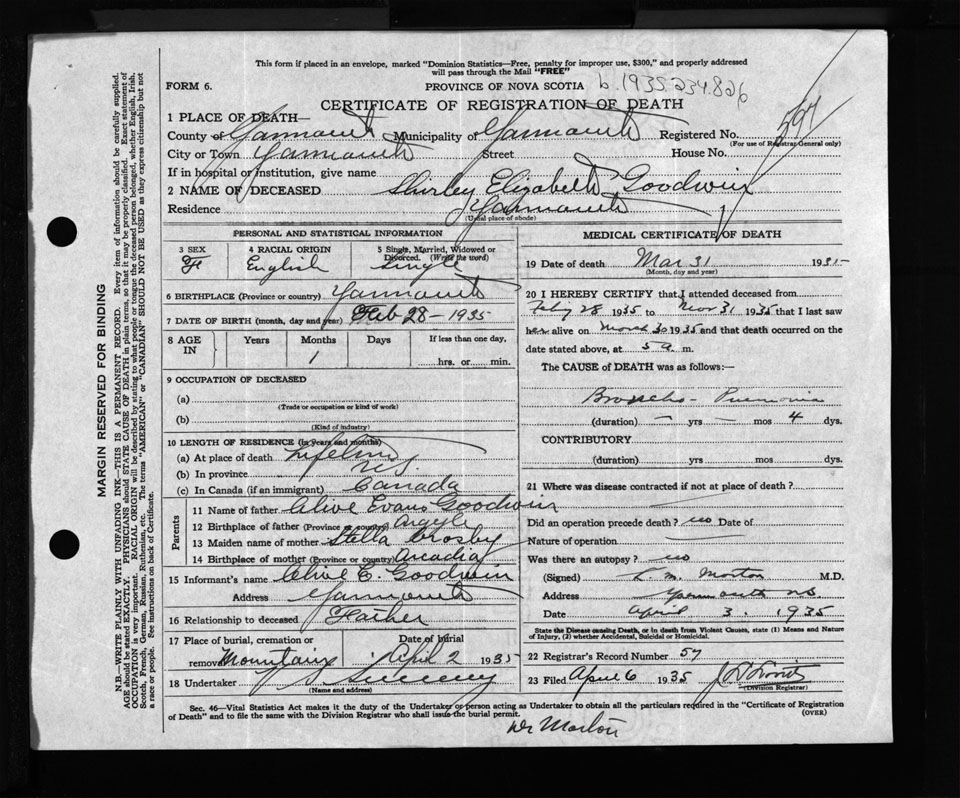 This form if placed in an envelope, marked "Dominion Statistics—Free, penalty for improper use, $300," and properly addressed
will pass through the Mail "FREE"
FORM 6.
PROVINCE OF NOVA SCOTIA b. 1935 234.826
CERTIFICATE OF REGISTRATION OF DEATH
1 PLACE OF DEATH—
County of Yarmouth Municipality of Yarmouth Registered No.
(For use of Registrar General only)
City or Town Yarmouth Street House No.
If in hospital or institution, give name
2 NAME OF DECEASED Shirley Elizabeth Goodwin
Residence Yarmouth
(Usual place of abode)
PERSONAL AND STATISTICAL INFORMATION
3 SEX F
4 RACIAL ORIGIN English
5 Single, Married, Widowed or Divorced. (Write the word) Single
6 BIRTHPLACE (Province or country) Yarmouth
7 DATE OF BIRTH (month, day and year) Feb 28 - 1935
8 AGE IN Years Months 1 Days If less than one day, hrs. or min.
9 OCCUPATION OF DECEASED
(a)
(Trade or occupation or kind of work)
(b)
(Kind of industry)
10 LENGTH OF RESIDENCE (in years and months)
(a) At place of death Lifetime
(b) In province N.S.
(c) In Canada (if an immigrant) Canada
Parents
11 Name of father Clive Evans Goodwin
12 Birthplace of father (Province or country) Argyle
13 Maiden name of mother Stella Crosby
14 Birthplace of mother (Province or country) Arcadia
15 Informant's name Clive E. Goodwin
Address Yarmouth
16 Relationship to deceased Father
17 Place of burial, cremation or removal Mountain Date of burial April 2 1935
18 Undertaker Sweeney
(Name and address)
MEDICAL CERTIFICATE OF DEATH
19 Date of death Mar 31 1935
(Month, day and year)
20 I HEREBY CERTIFY that I attended deceased from
Feby 28 1935 to Mar 31 1935 that I last saw
her alive on March 30 1935 and that death occurred on the
date stated above, at 5 a. m.
The CAUSE of DEATH was as follows:—
Broncho - Pneumonia
(duration) — yrs — mos 4 dys.
CONTRIBUTORY
(duration) yrs mos dys.
21 Where was disease contracted if not at place of death?
Did an operation precede death? no Date of
Nature of operation
Was there an autopsy? no
(Signed) L. M. Morton M.D.
Address Yarmouth NS
Date April 3. 1935
State the Disease causing Death, or in death from Violent Causes, state (1) Means and Nature
of Injury, (2) whether Accidental, Suicidal or Homicidal.
22 Registrar's Record Number 57
23 Filed April 6 1935
(Division Registrar)
Sec. 46—Vital Statistics Act makes it the duty of the Undertaker or person acting as Undertaker to obtain all the particulars required in the "Certificate of Registration
of Death" and to file the same with the Division Registrar who shall issue the burial permit. (OVER)
Dr Morton
MARGIN RESERVED FOR BINDING
N.B.—WRITE PLAINLY WITH UNFADING INK—THIS IS A PERMANENT RECORD. Every item of information should be carefully supplied.
AGE should be stated EXACTLY. PHYSICIANS should STATE CAUSE OF DEATH in plain terms, so that it may be properly classified. Exact statement of
OCCUPATION is very important. RACIAL ORIGIN will be described by stating to what people or tongue the deceased person belonged, whether English, Irish,
Scotch, French, German, Russian, Ruthenian, etc. The terms "AMERICAN" or "CANADIAN" SHOULD NOT BE USED as they express citizenship but not
a race or people. See instructions on back of Certificate.